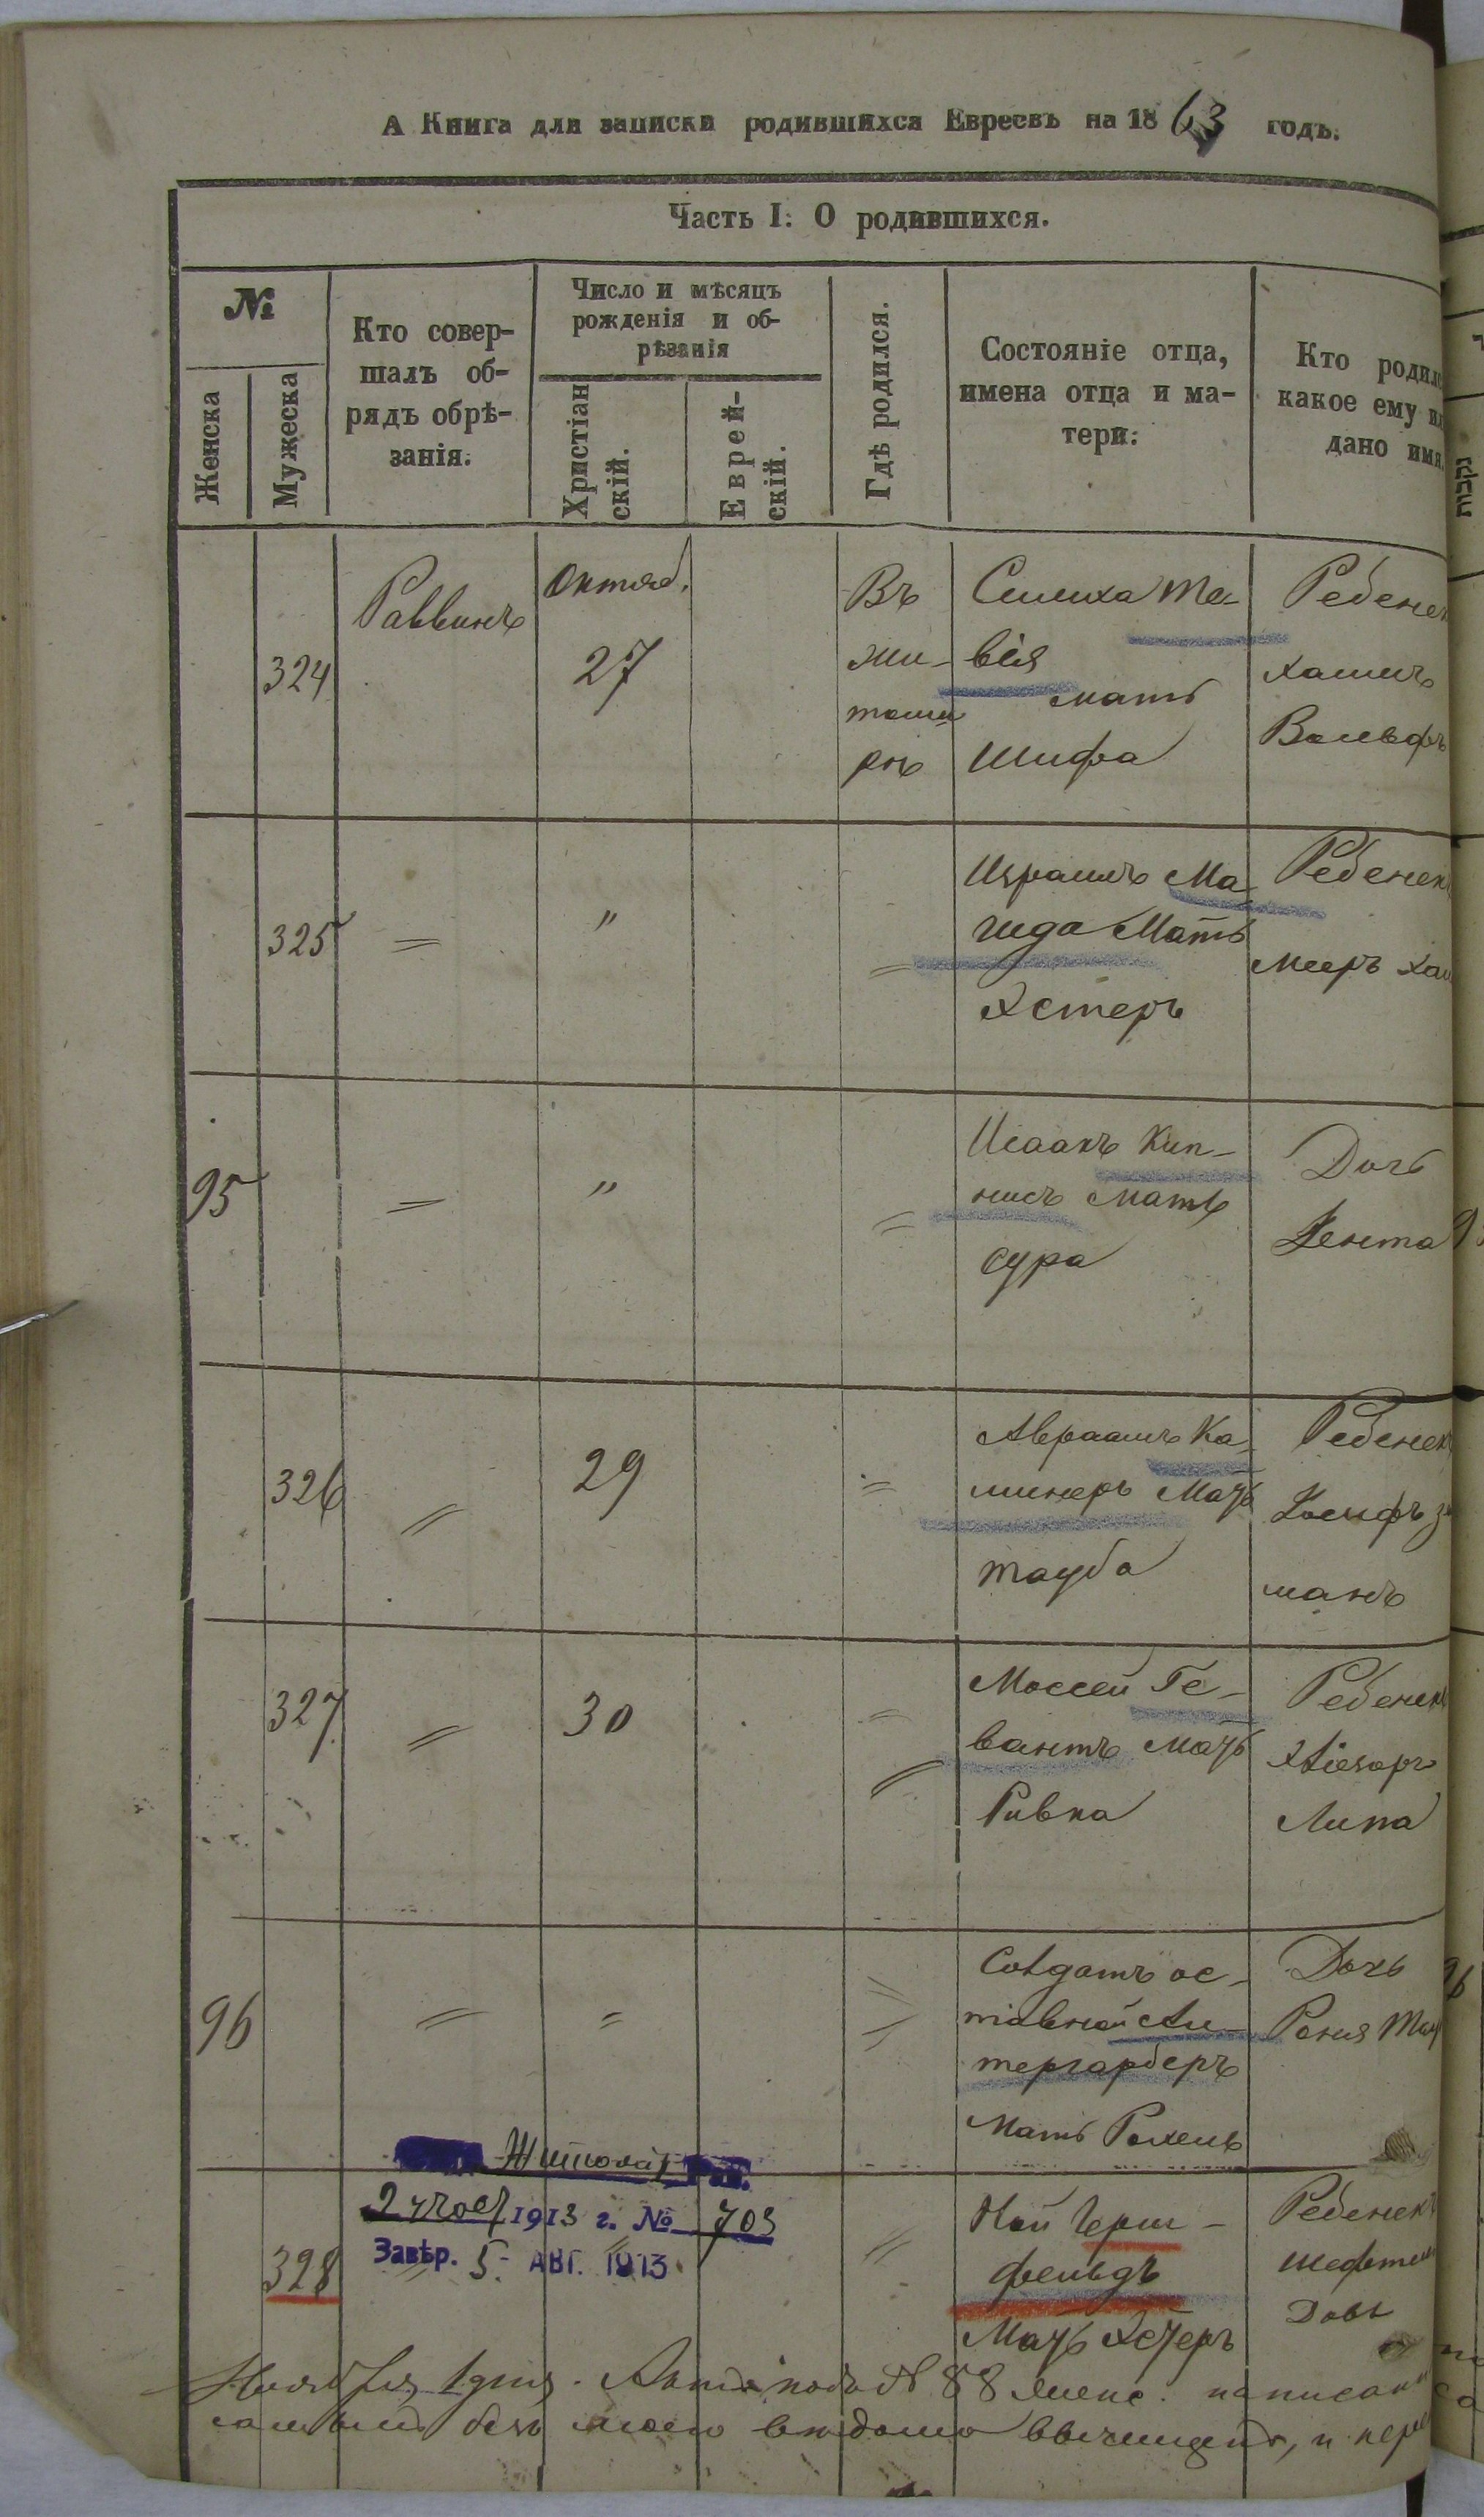 А Книга для записки родившихся Евреевъ на 1863 годъ.
Часть I. О родившихся.
№
Женска
Мужеска
Кто совер-
шалъ об-
рядъ обрѣ-
занія.
Число и мѣсяцъ
рожденія и об-
рѣзанія
Христіан
скій.
Еврей-
скій.
Гдѣ родился.
Состояніе отца,
имена отца и ма-
тери.
Кто родилс
какое ему и
дано имя.
324
Раввинъ
Октяб.
27
Въ
Жи-
томи
рѣ
Симха Те-
вія
мать
Шифа
Ребенек
Хаимъ
Вольфъ
325
=
"
=
Израиль Ма-
гида Мать
Эстеръ
Ребенек
Мееръ Хаи
95
=
"
=
Исаакъ Кип-
нисъ мать
Сура
Дочь
Ента
326
=
29
=
Авраамъ Ка-
минеръ Мать
Тауба
Ребенек
Іосифъ З
манъ
327
=
30
=
=
Моссей Ге-
вантъ мать
Ривка
Ребенек
Ліезоръ
Липа
96
=
=
=
=
Солдатъ ос-
тавной Ли-
тергарберъ
Мать Рохель
Дочь
Рейзя
Житомір
Рав.
1913 г. № 703
Завѣр. 5 - АВГ. 1913
328
=
Герш-
фельдъ
Мать Эстеръ
Ребенек
Шефтель
Довъ
Ноября 1 дня. Актъ подъ № 88 женс. написан
безъ моего вѣдома вычищенъ, и